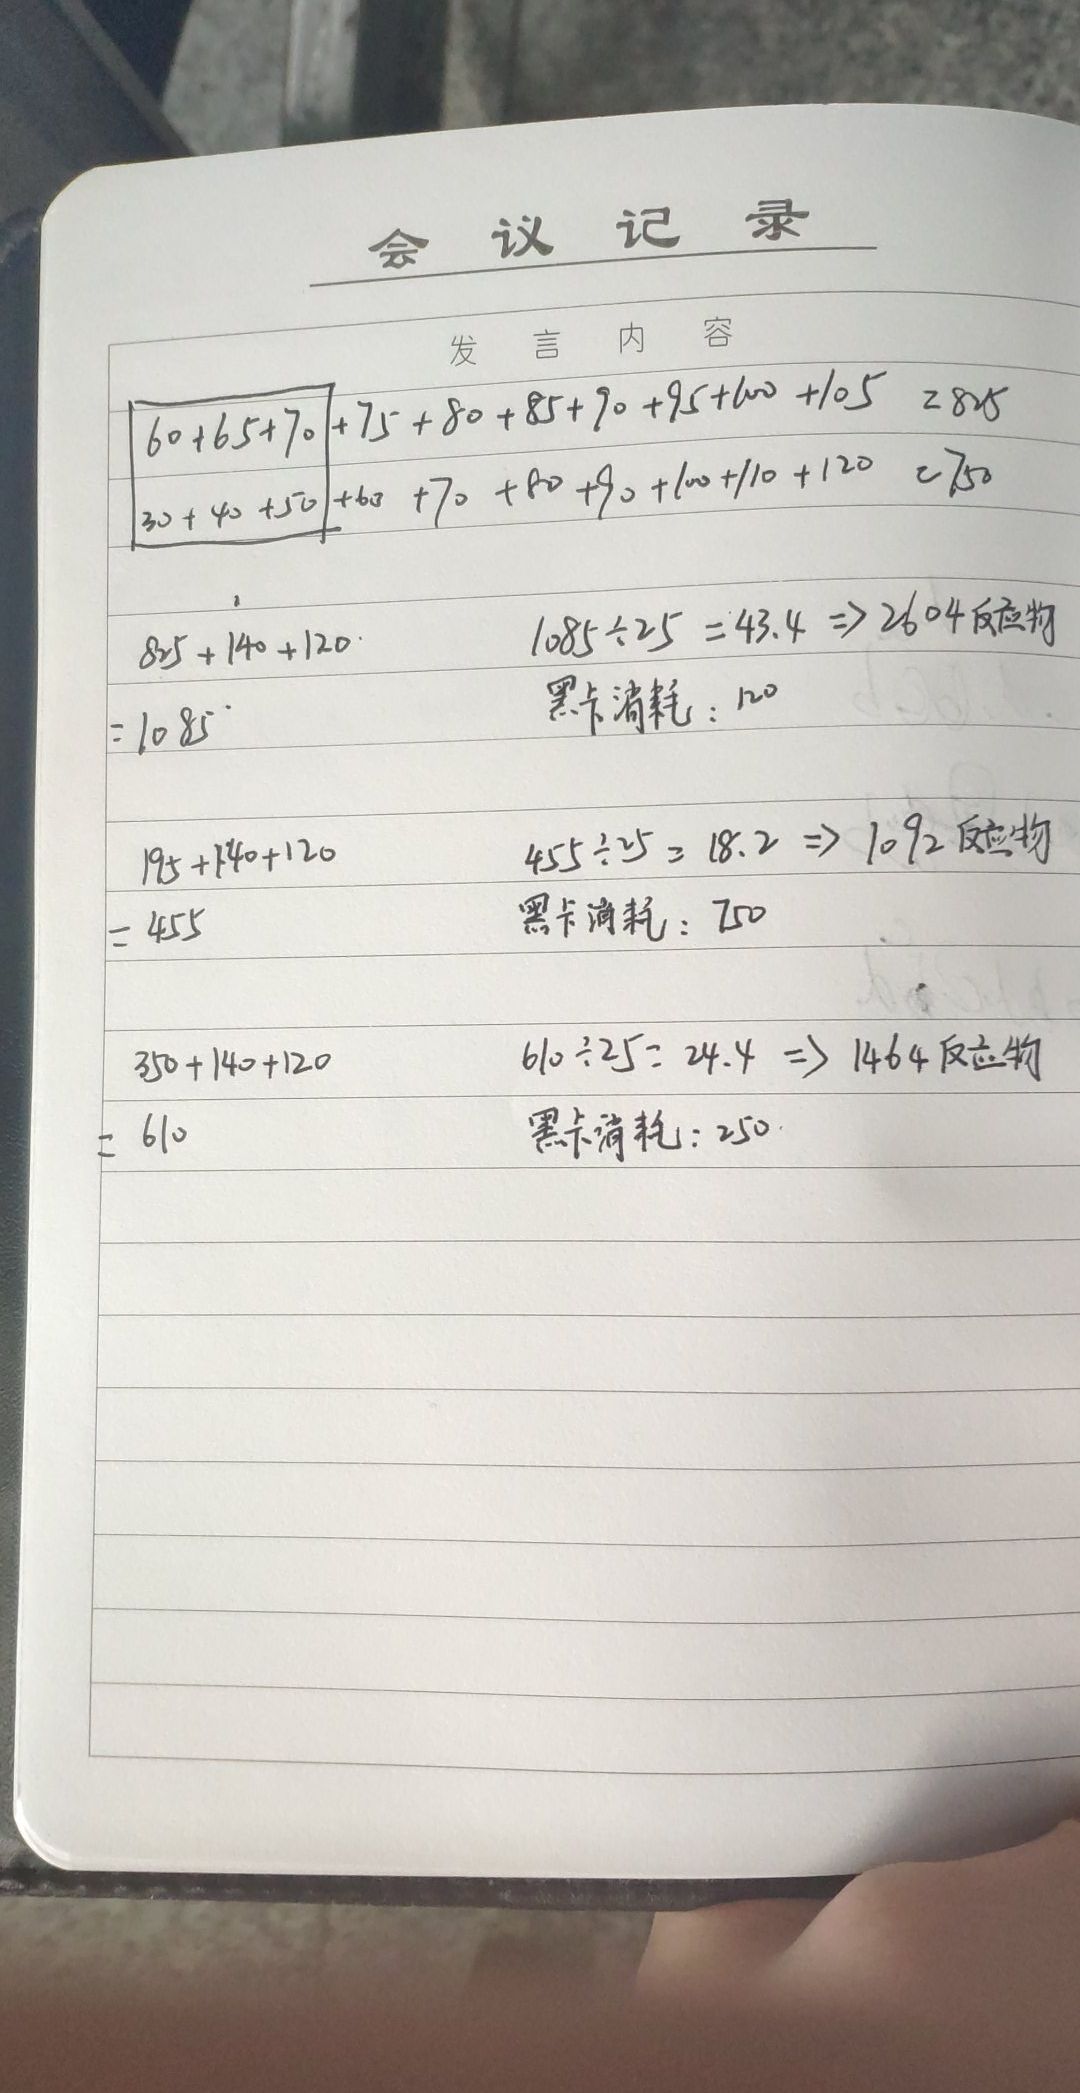 会议记录
发言内容
60+65+70+75+80+85+90+95+100+105 =825
30+40+50+60+70+80+90+100+110+120 =750
825+140+120 1085÷25=43.4=>2604反应物
=1085 黑卡消耗:120
195+140+120 455÷25=18.2=>1092反应物
=455 黑卡消耗:750
350+140+120 610÷25=24.4=>1464反应物
=610 黑卡消耗:250